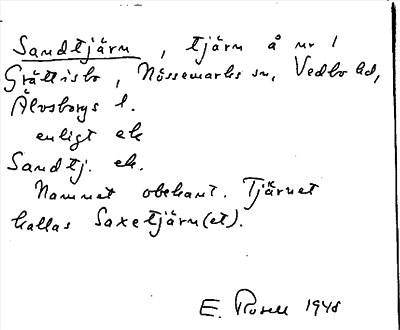 Sandtjärn, tjärn å nr 1
Gråttisbo, Nössemarks sn, Vedbo hd,
Älvsborgs l.
enligt ek
Sandtj. ek.
Namnet obekant. Tjärnet
kallas Saxetjärn(et).
E. Rosell 1948